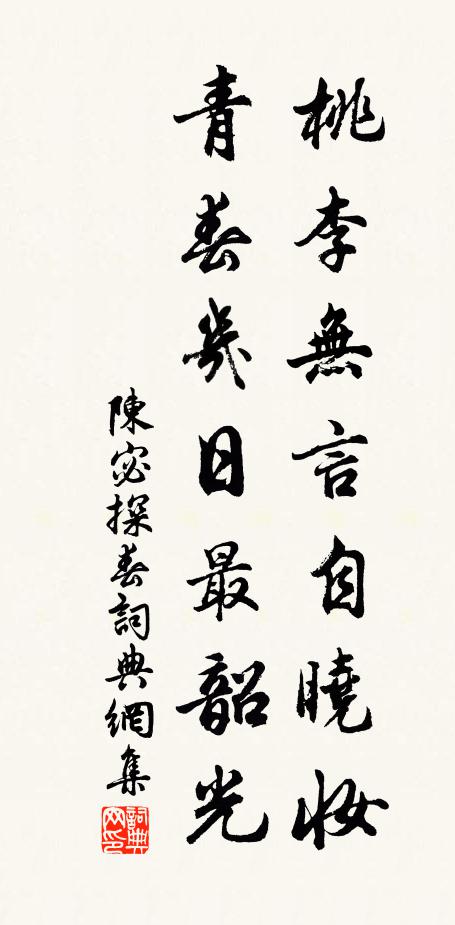 桃李無言自曉妝
青春幾日最韶光
陳宓探春詞典網集
詞典网印